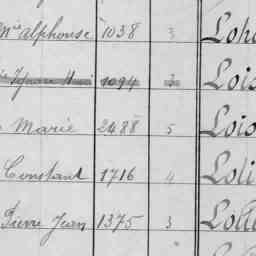 Mie alphonse 1038 3 Loh
1094 3 Lois
Marie 2488 5 Lois
Constant 1716 4 Loli
Pierre Jean 1375 3